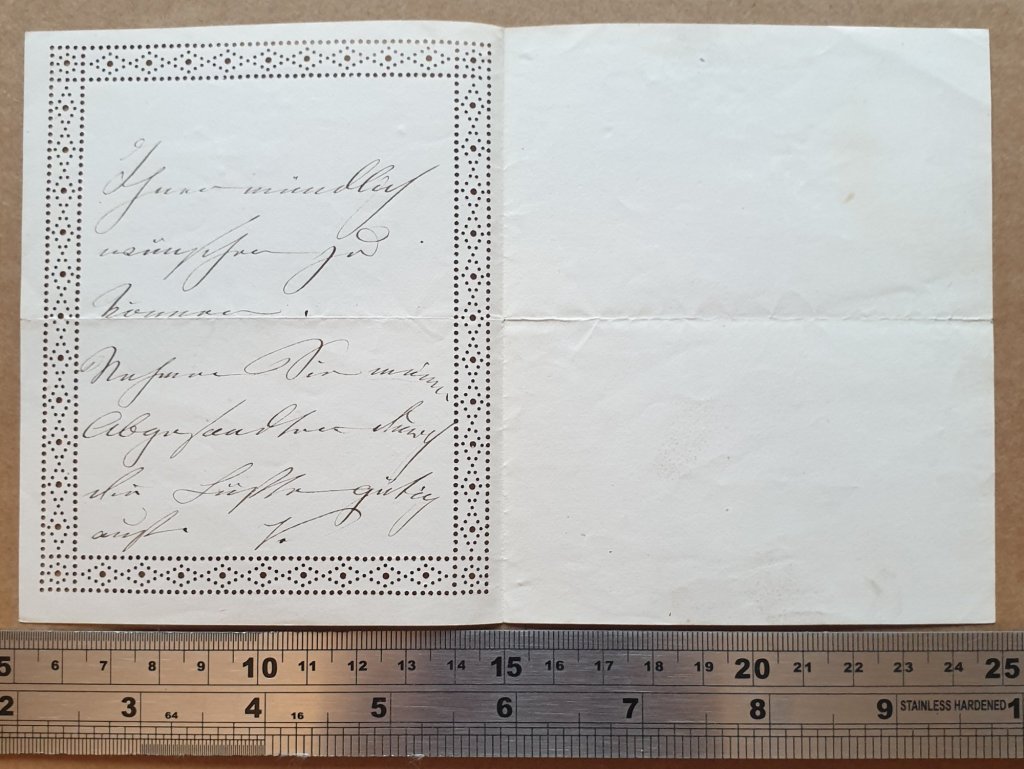 Ihnen mündlich
wünschen zu
können.
Nehmen Sie meine
Abgesandten durch
die Lüfte gütig
auf. V.
5 6 7 8 9 10 11 12 13 14 15 16 17 18 19 20 21 22 23 24 25
2 3 64 4 16 5 6 7 8 9 STAINLESS HARDENED 1